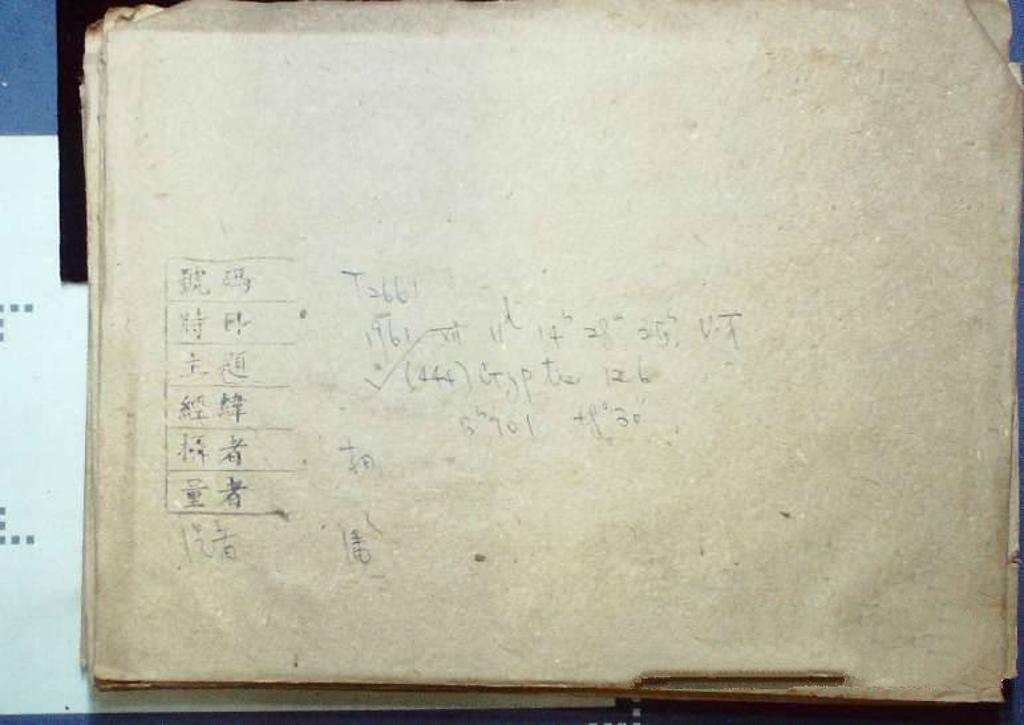 號碼 T2661
時即 1961 XII 11ᵈ 14ʰ 28ᵐ 25ˢ. U.T
主題 (444) Gyptis 12.6
經緯 5ʰ 701 +8°30'
攝者
量者
潘